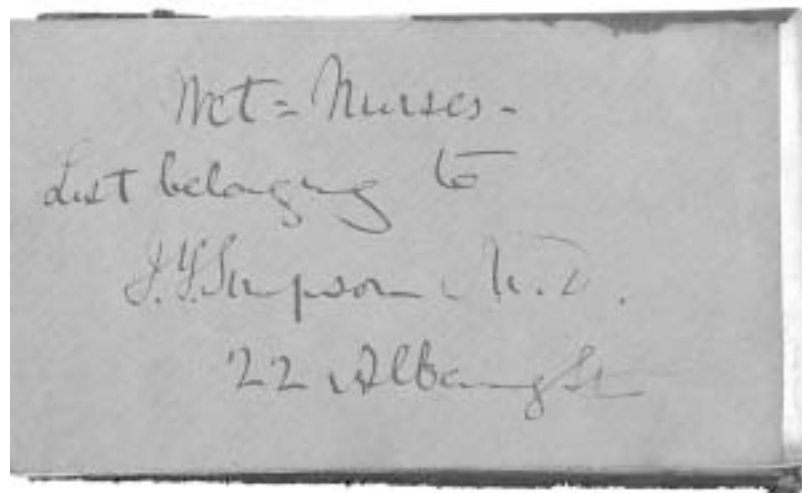 Wet = Nurses -
List belonging to
J. Y. Simpson, M. D.
22 Albany St